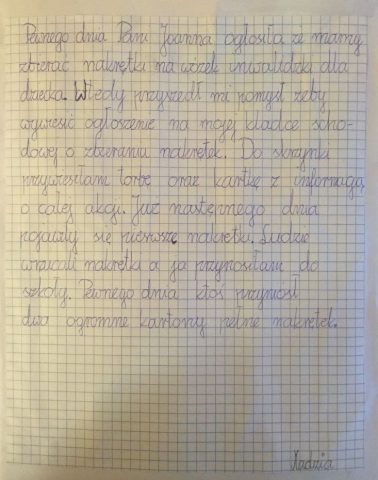 Pewnego dnia Pani Joanna ogłosiła że mamy
zbierać nakrętki na wózek inwalidzki dla
dziecka. Wtedy przyszedł mi pomysł żeby
wywiesić ogłoszenie na mojej kladce scho-
dowej o zbieraniu nakrętek. Do skrzynki
przywiesiłam torbę oraz kartkę z informają
o całej akcji. Już następnego dnia
pojawiły się pierwsze nakrętki. Ludzie
wrzucali nakrętki a ja przynosiłam do
szkoły. Pewnego dnia ktoś przyniósł
dwa ogromne kartony pełne nakrętek.
Nadzia